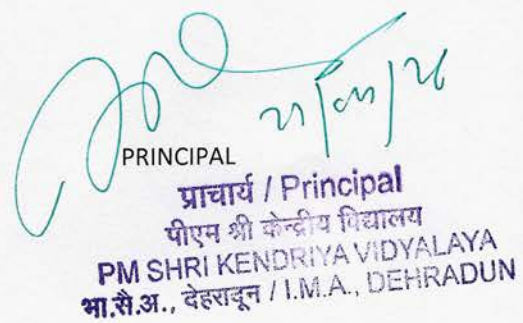 PRINCIPAL
प्राचार्य / Principal
पीएम श्री केन्द्रीय विद्यालय
PM SHRI KENDRIYA VIDYALAYA
भा.सै.अ., देहरादून / I.M.A., DEHRADUN